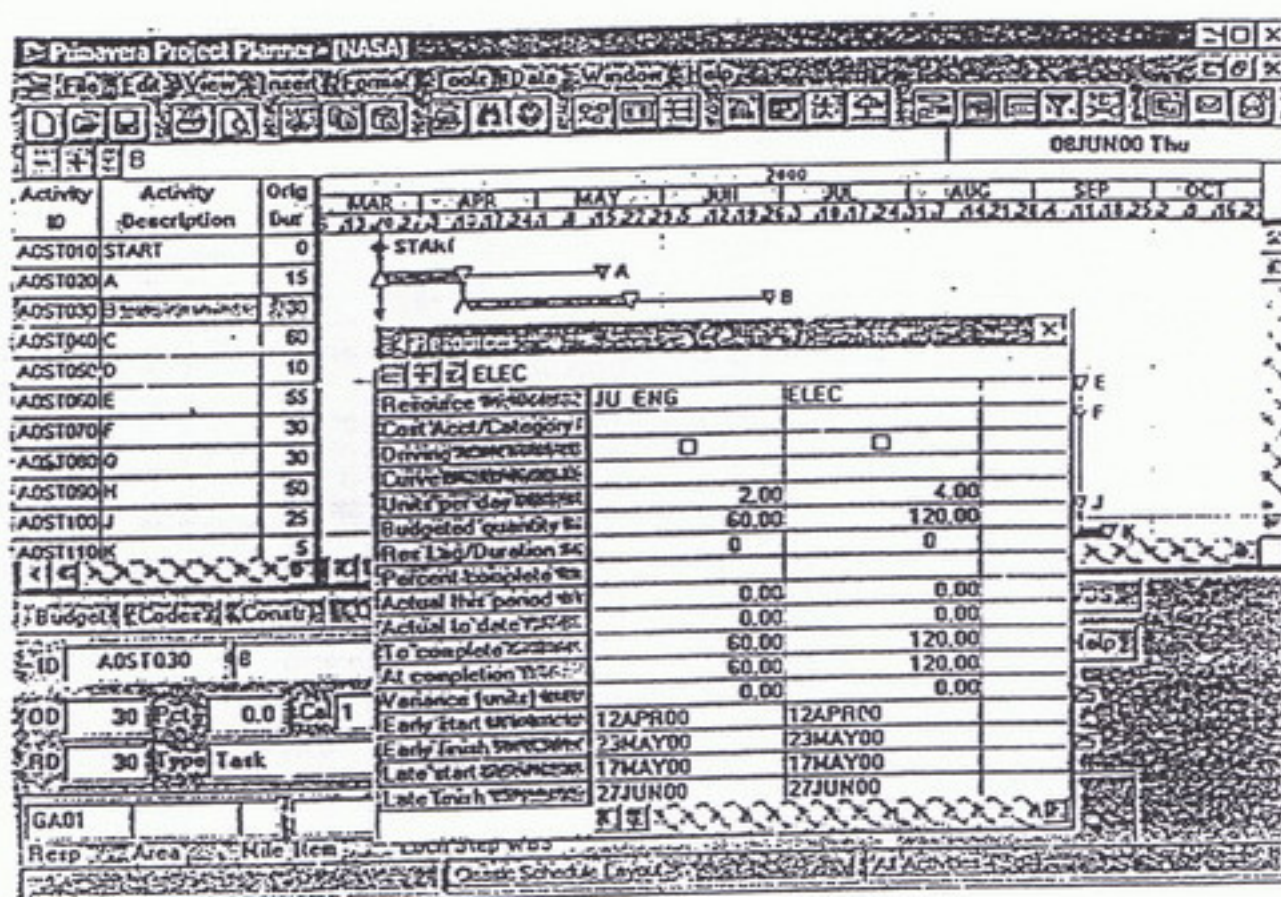 Primavera Project Planner - [NASA]
File Edit View Insert Format Tools Data Window Help
B
08JUN00 Thu
2000
Activity ID Activity Description Orig Dur
MAR APR MAY JUN JUL AUG SEP OCT
A0ST010 START 0
START
A0ST020 A 15
A
A0ST030 B 30
B
A0ST040 C 60
A0ST050 D 10
A0ST060 E 55
A0ST070 F 30
A0ST080 G 30
A0ST090 H 50
A0ST100 J 25
A0ST110 K 5
E
F
J
K
Resources
ELEC
Resource JU ENG ELEC
Cost Acct/Category
Driving
Curve
Units per day 2.00 4.00
Budgeted quantity 60.00 120.00
Res Lag/Duration 0 0
Percent complete
Actual this period 0.00 0.00
Actual to date 0.00 0.00
To complete 60.00 120.00
At completion 60.00 120.00
Variance (units) 0.00 0.00
Early start 12APR00 12APR00
Early finish 23MAY00 23MAY00
Late start 17MAY00 17MAY00
Late finish 27JUN00 27JUN00
Budget Codes Constr
Help
ID A0ST030 B
OD 30 Pct 0.0 Cal 1
RD 30 Type Task
GA01
Resp Area Mile Item Step WBS
Classic Schedule Layout All Activities